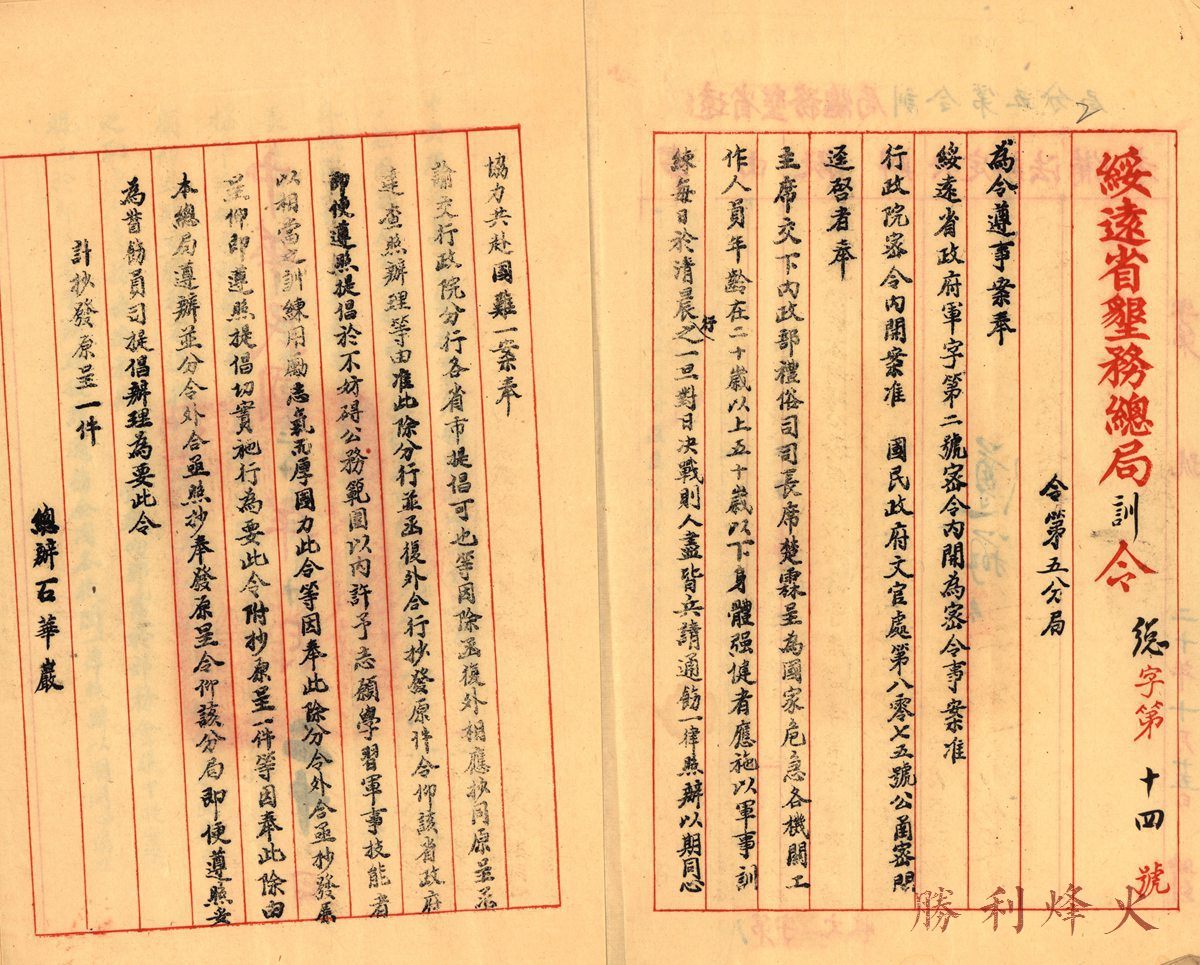 綏遠省墾務總局訓令 總字第十四號
令第五分局
為令遵事案奉
綏遠省政府軍字第二號密令內開為密令事案准
行政院密令內開案准 國民政府文官處第八零七五號公函密開
逕啓者奉
主席交下內政部禮俗司司長席楚霖呈為國家危急各機關工
作人員年齡在二十歲以上五十歲以下身體强健者應施以軍事訓
練每日於清晨行之一旦對日決戰則人盡皆兵請通飭一律照辦以期同心
協力共赴國難一案奉
諭交行政院分行各省市提倡可也等因除函復外相應抄同原呈函
達查照辦理等由准此除分行並函復外合行抄發原件令仰該省政府
即便遵照提倡於不妨碍公務範圍以內許予志願學習軍事技能者
以相當之訓練用勵志氣而厚國力此令等因奉此除分令外合亟抄發原
呈仰即遵照提倡切實施行為要此令附抄原呈一件等因奉此除由
本總局遵辦並分令外合亟照抄奉發原呈令仰該分局即便遵照妥
為督飭員司提倡辦理為要此令
計抄發原呈一件
總辦石華巖
勝利烽火